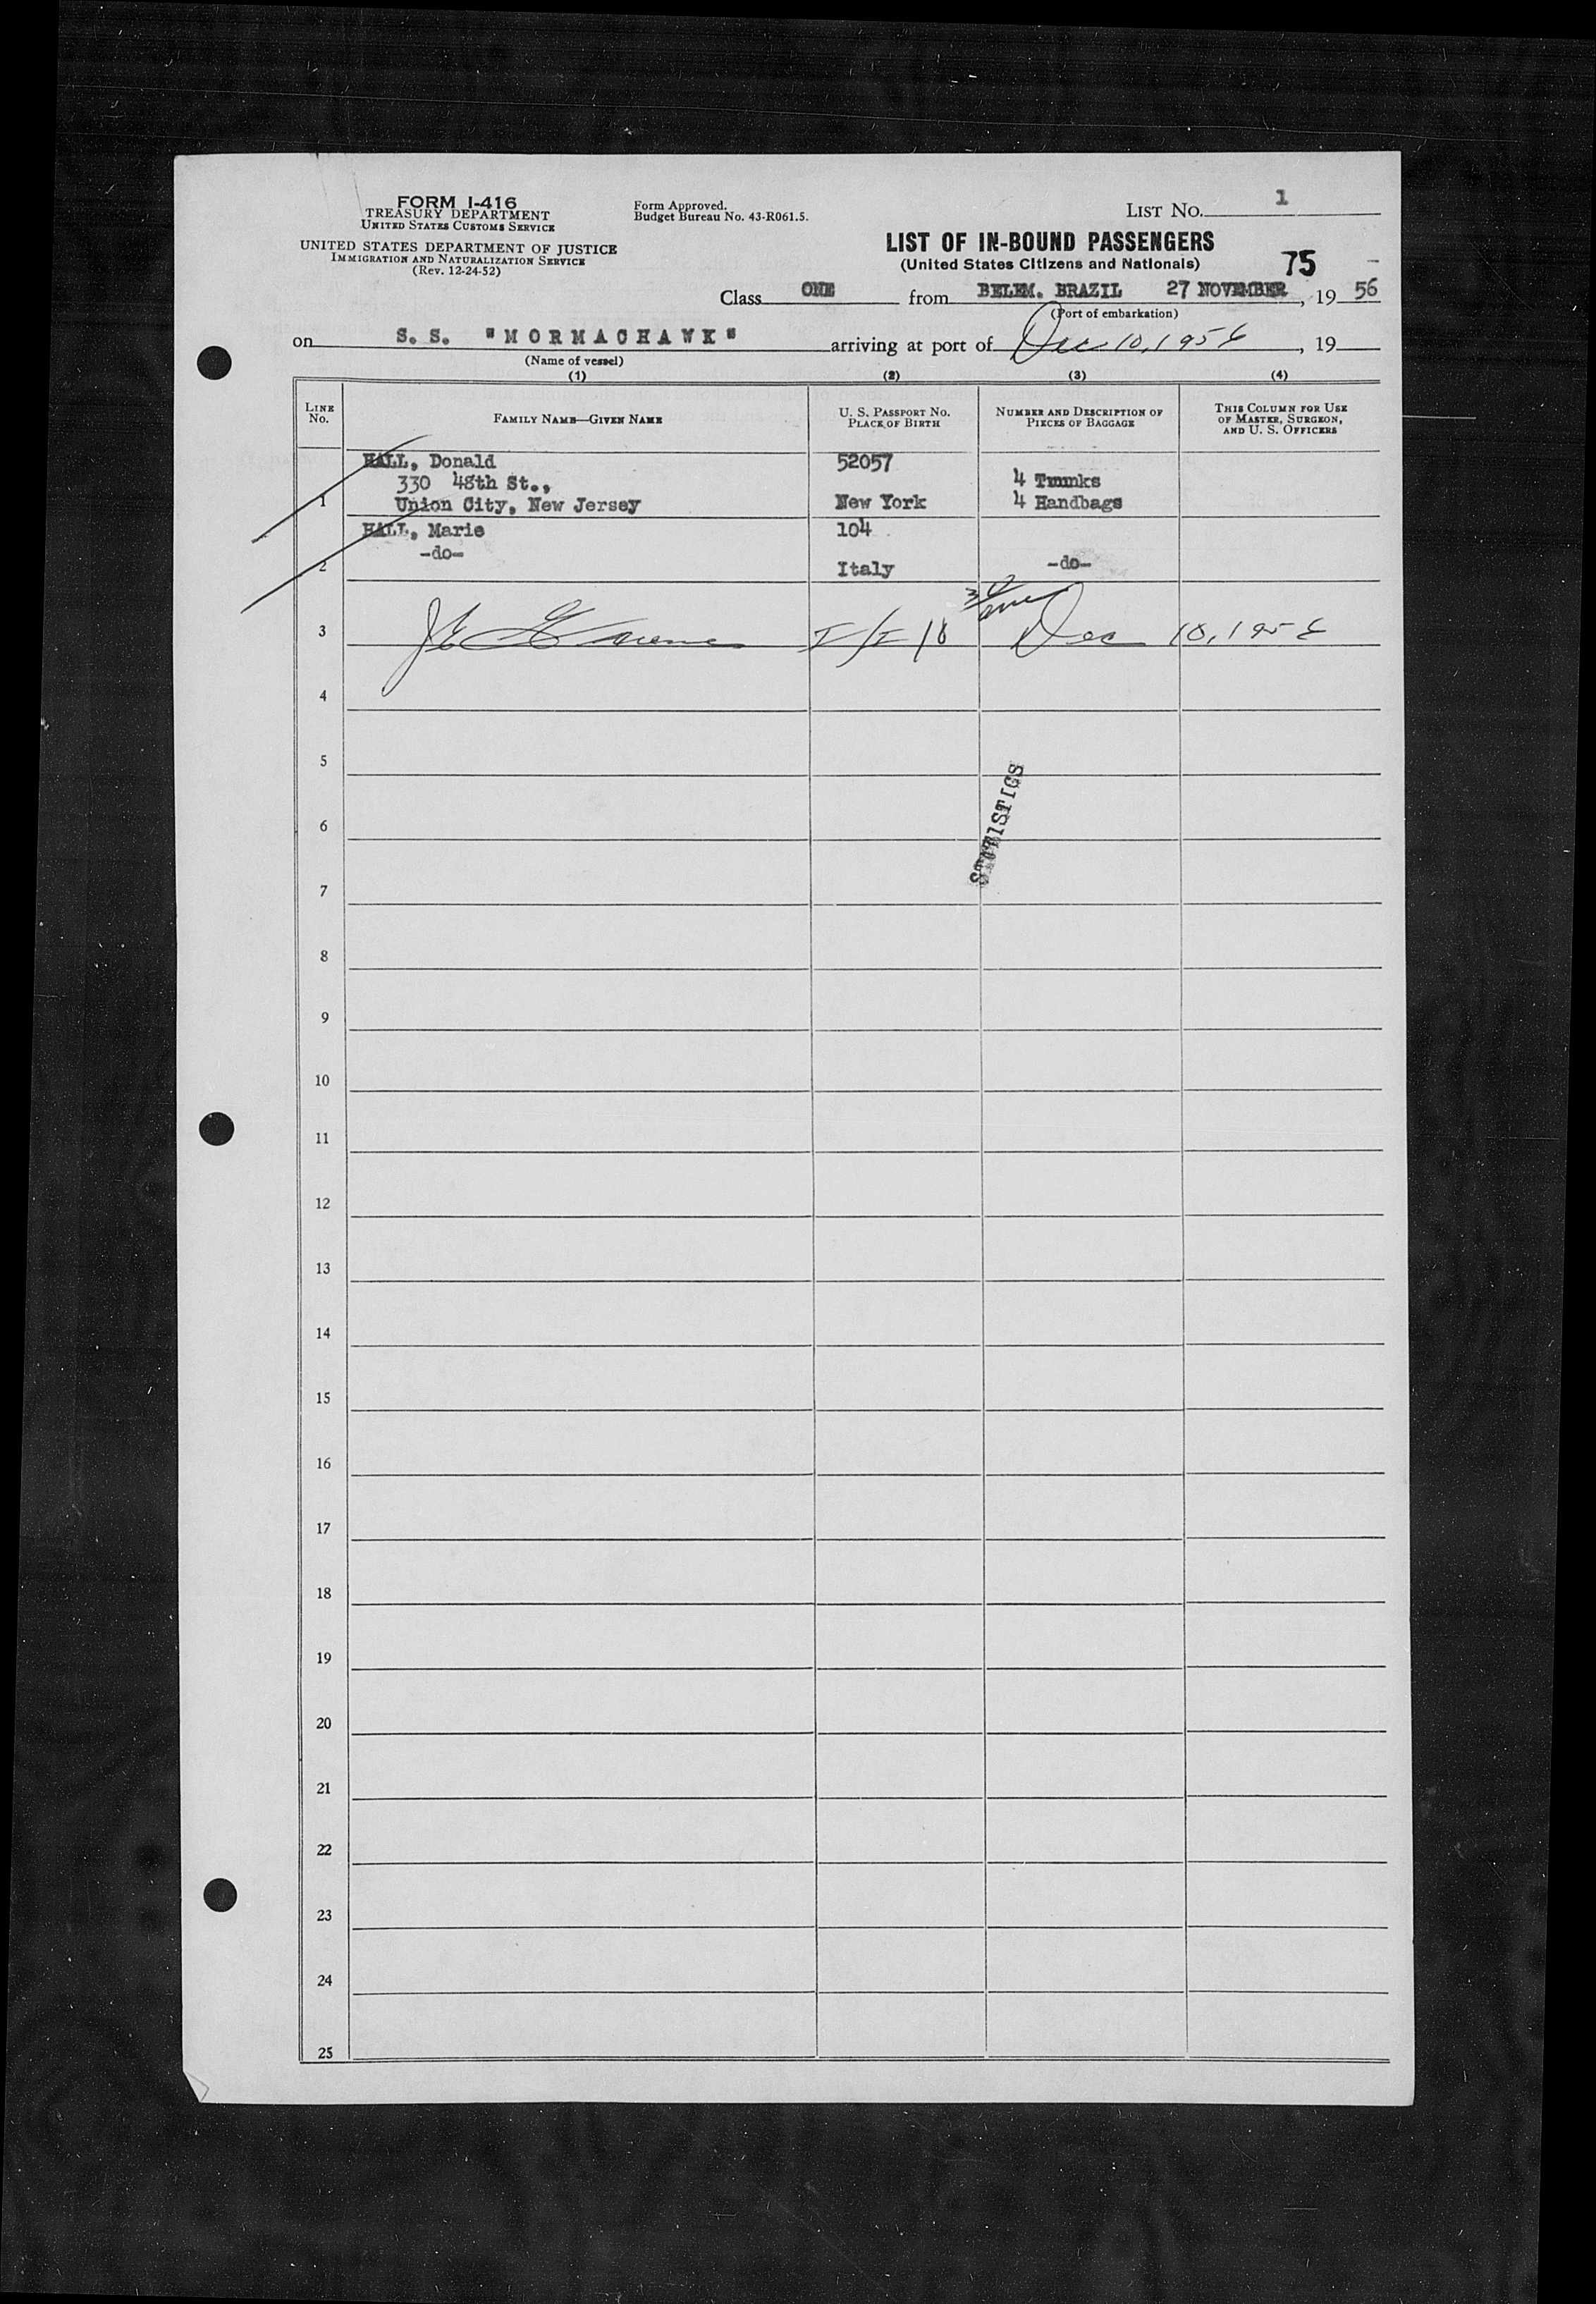 FORM I-416
TREASURY DEPARTMENT
UNITED STATES CUSTOMS SERVICE
UNITED STATES DEPARTMENT OF JUSTICE
IMMIGRATION AND NATURALIZATION SERVICE
(Rev. 12-24-52)
Form Approved.
Budget Bureau No. 43-R061.5.
LIST No. 1
LIST OF IN-BOUND PASSENGERS
(United States Citizens and Nationals)
75
Class ONE from BELEM. BRAZIL 27 NOVEMBER, 19 56
(Port of embarkation)
on S. S. "MORMACHAWK" arriving at port of Dec 10, 1956, 19
(Name of vessel)
(1) (2) (3) (4)
LINE No. FAMILY NAME—GIVEN NAME U. S. PASSPORT No. PLACE OF BIRTH NUMBER AND DESCRIPTION OF PIECES OF BAGGAGE THIS COLUMN FOR USE OF MASTER, SURGEON, AND U. S. OFFICERS
HALL, Donald 52057
330 48th St., 4 Trunks
1 Union City, New Jersey New York 4 Handbags
HALL, Marie 104
-do-
2 Italy -do-
3 Dec 10, 1956
4
5
STATISTICS
6
7
8
9
10
11
12
13
14
15
16
17
18
19
20
21
22
23
24
25